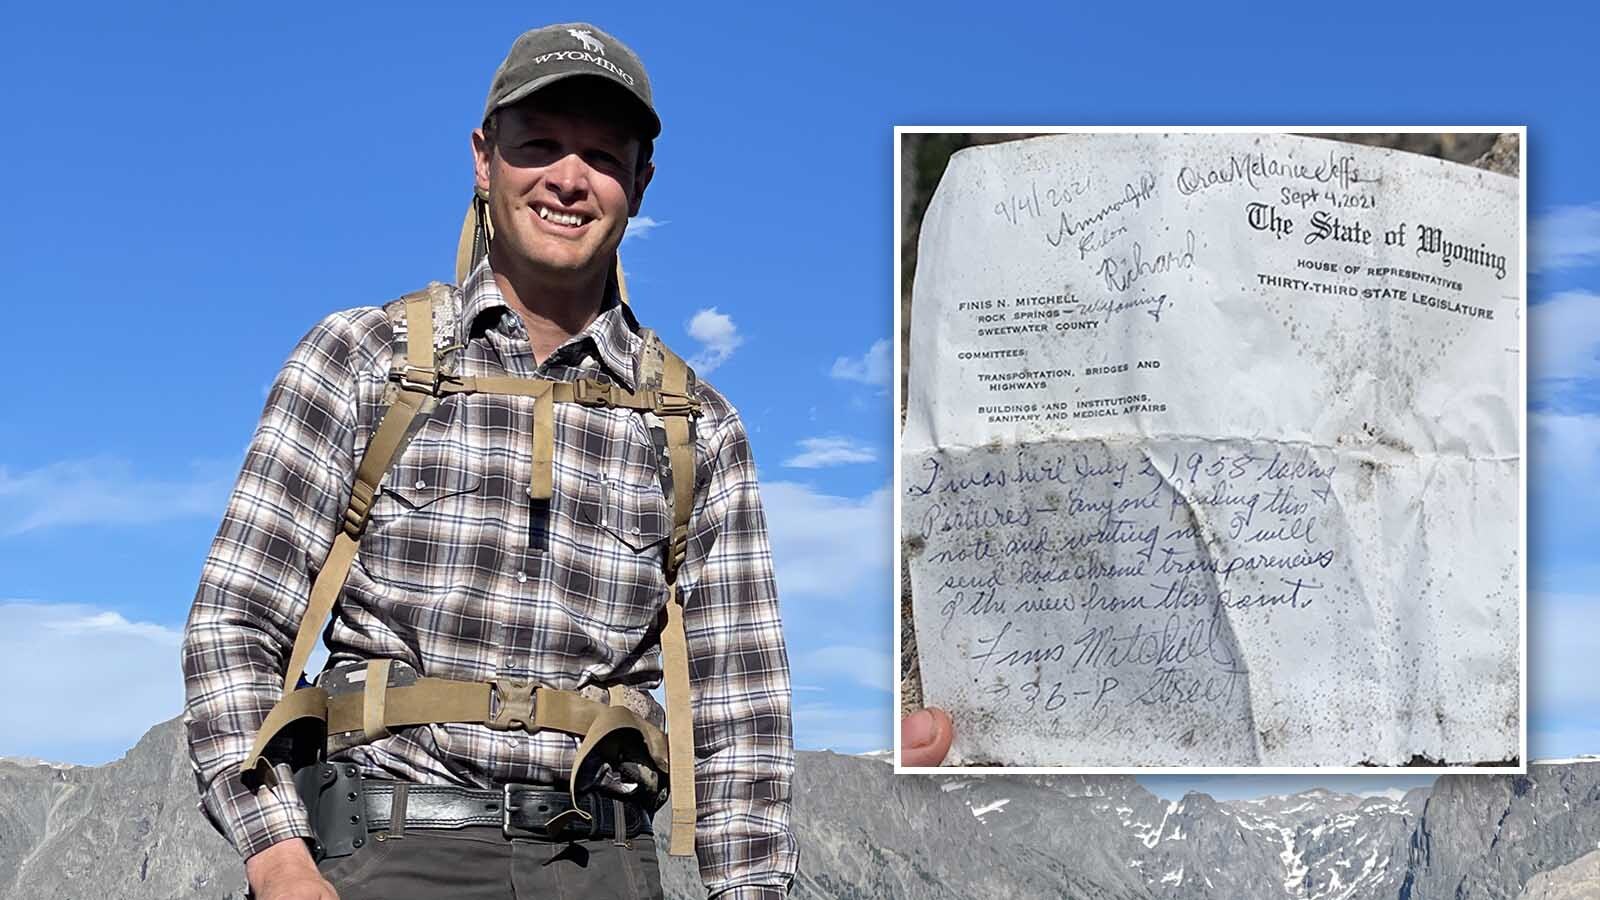 WYOMING
9/4/2021
Sept 4, 2021
Richard
The State of Wyoming
HOUSE OF REPRESENTATIVES
THIRTY-THIRD STATE LEGISLATURE
FINIS N. MITCHELL
ROCK SPRINGS – Wyoming,
SWEETWATER COUNTY
COMMITTEES:
TRANSPORTATION, BRIDGES AND
HIGHWAYS
BUILDINGS AND INSTITUTIONS,
SANITARY AND MEDICAL AFFAIRS
I was here July 2, 1958 taking
Pictures – anyone finding this
note and writing me I will
send Kodachrome transparencies
of the view from this point.
Finis Mitchell
336-P Street